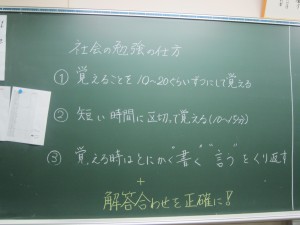 社会の勉強の仕方
① 覚えることを10~20ぐらいずつにして覚える
② 短い時間に区切って覚える(10~15分)
③ 覚える時はとにかく"書く""言う"をくり返す
+
解答合わせを正確に!